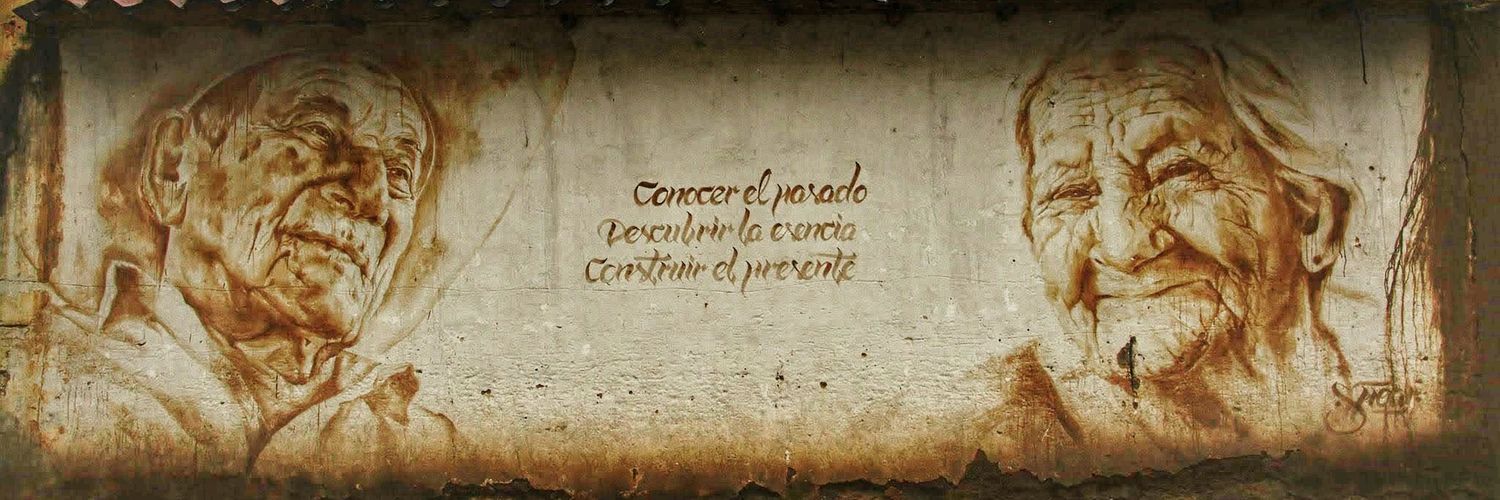 Conocer el pasado
Descubrir la esencia
Construir el presente